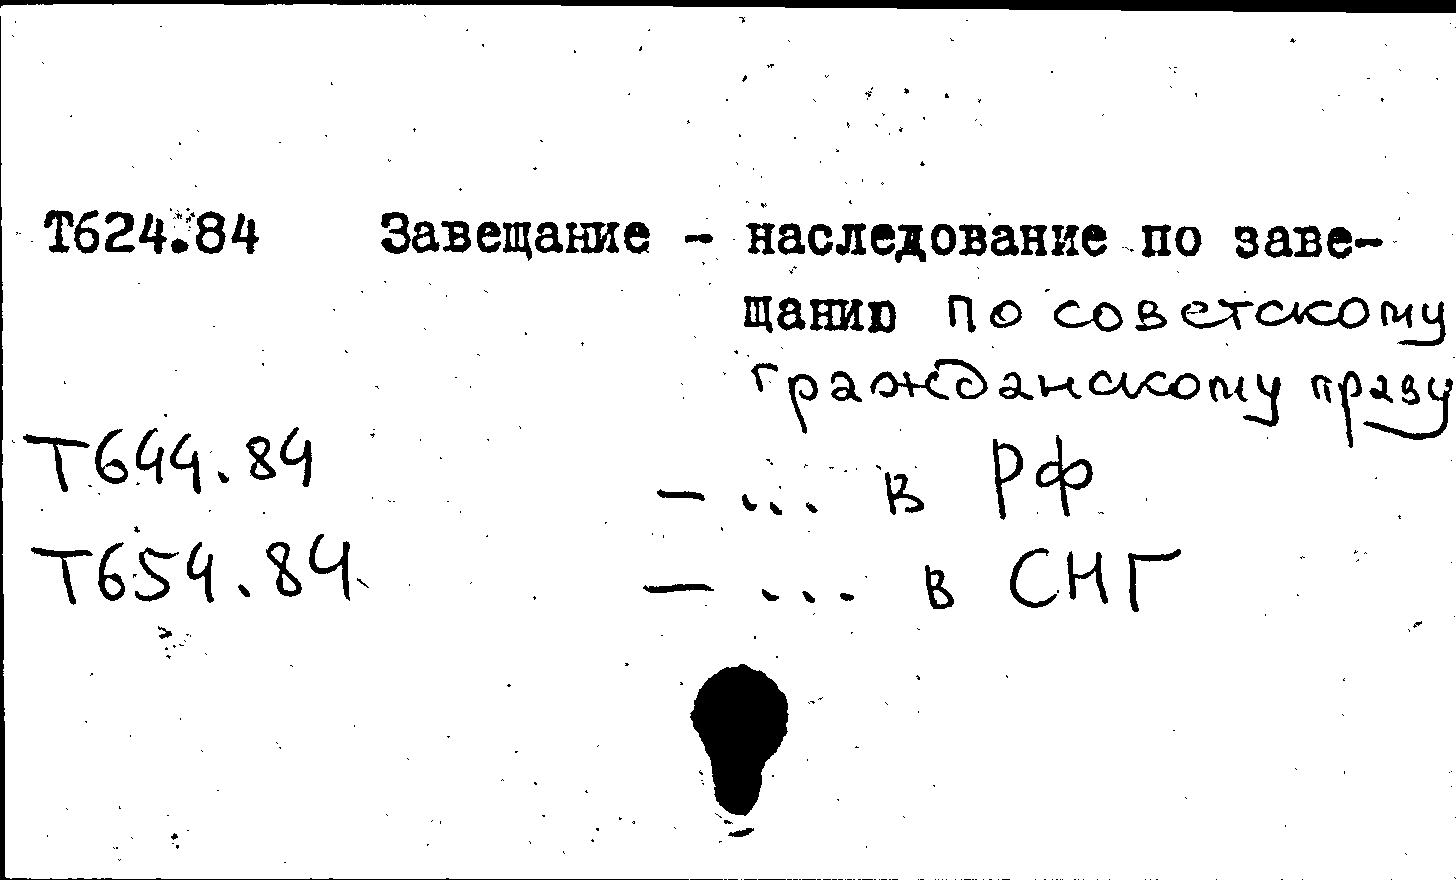 Т624.84 Завещание - наследование по заве-
щанию по советскому
гражданскому праву
Т644.84 — ... в РФ
Т654.84 — ... в СНГ